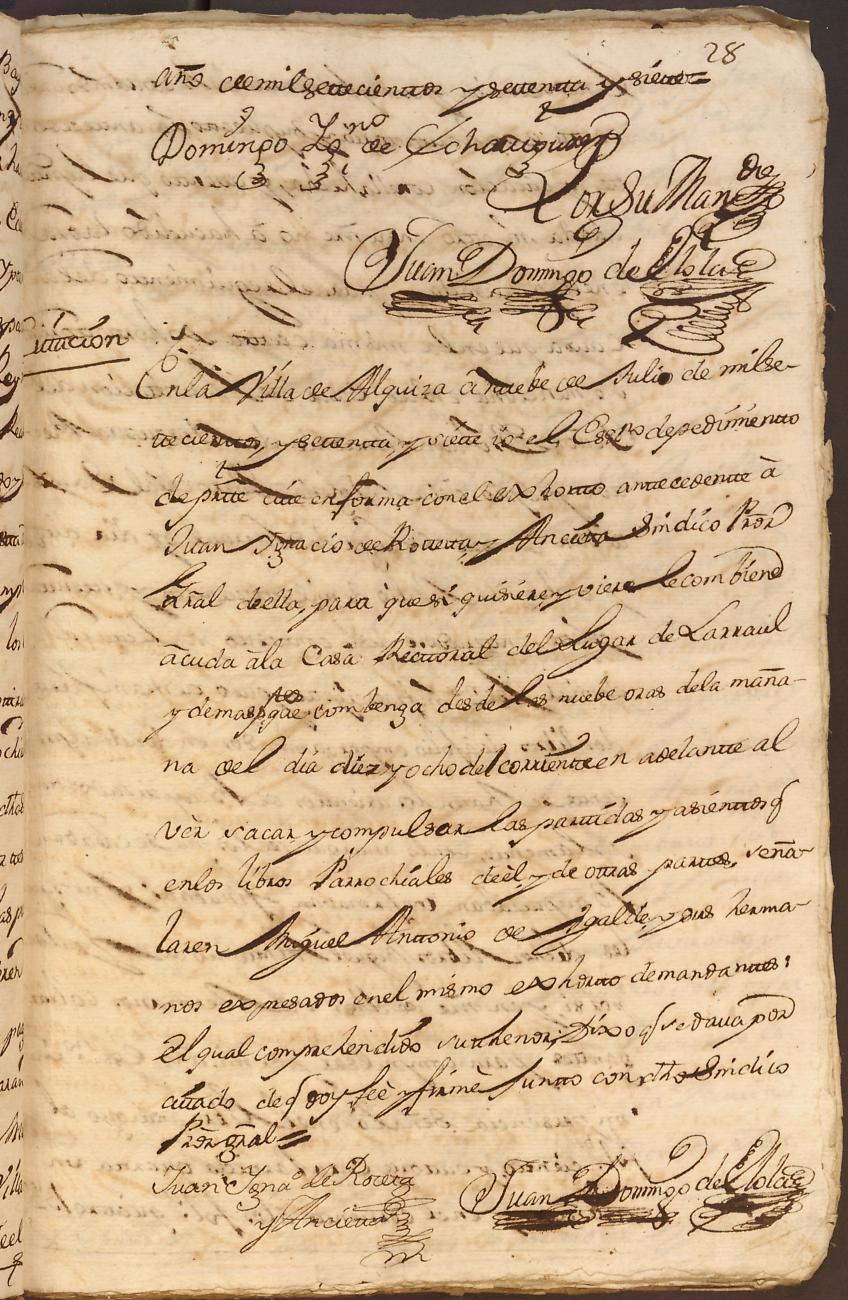 28
año de mil settecienttos y settentta y siette=
Domingo Ig.no de Echanique
Por su Man.do
Juan Domingo de Elola
Cittación
En la Villa de Alquiza à nuebe de Julio de mil se-
ttecienttos, y settentta, y siette io el Essno de pedimientto
de partte citte en forma con el exhortto anttecedentte à
Juan Ignacio de Rottetta y Ancietta Sindico Pror
Gral de ella, para que si quisiere, y viere le combiene
àcuda àla Casa Recttoral del Lugar de Larraul
y demas ptes que combenga desde las nuebe oras dela maña-
na del dia diez y ocho del corriente en adelantte al
ver sacar y compulsar las parttidas y asienttos q
en los libros Parrochiales de èl y de ottras parttes, seña-
laren Miguel Anttonio de Igalde y sus herma-
nos expresados en el mismo exhortto demandanttes:
el qual comprehendido su thenor, Dixo q se dava por
cittado de q doy feè y firmè juntto con dtho Sindico
Pror gral=
Juan Igna.o de Roteta
y Ancieta
Juan Domingo de Elola